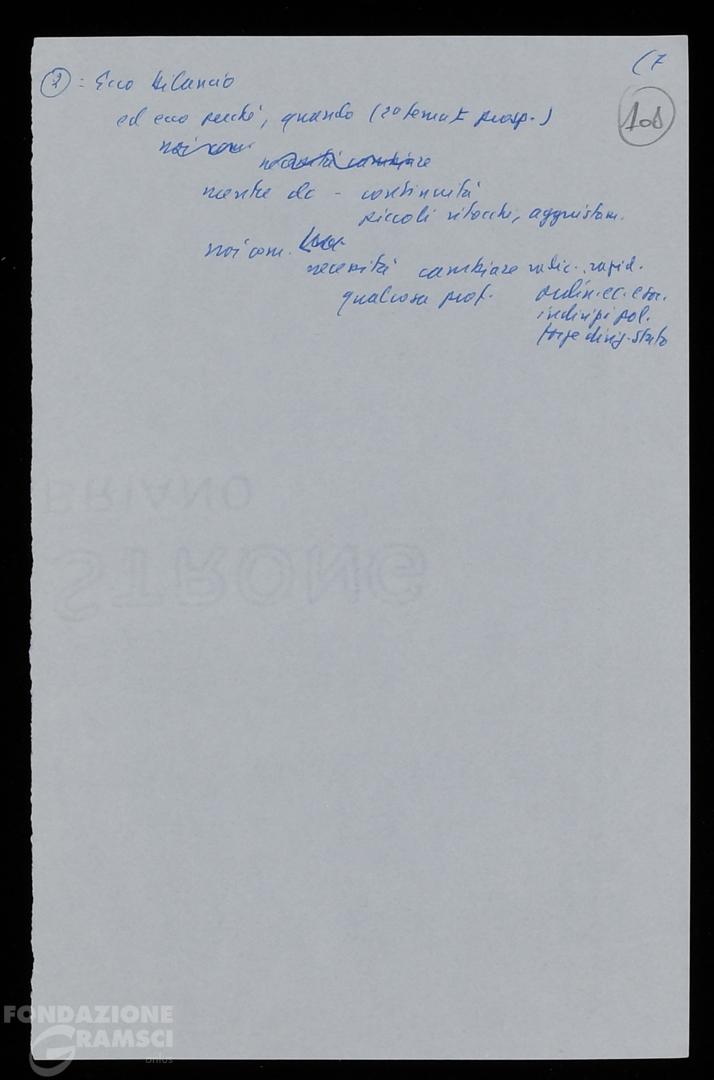 (7
108
② : Ecco bilancio
ed ecco perché, quando (2º tema t prosp.)
noi com.
necessità cambiare
mentre dc - continuità
piccoli ritocchi, aggiustam.
noi com.
necessità cambiare radic. rapid.
qualcosa prof. ordin. ec. e soc.
indirizzi pol.
forze dirig. Stato
FABRIANO
STRONG
FONDAZIONE
GRAMSCI
onlus